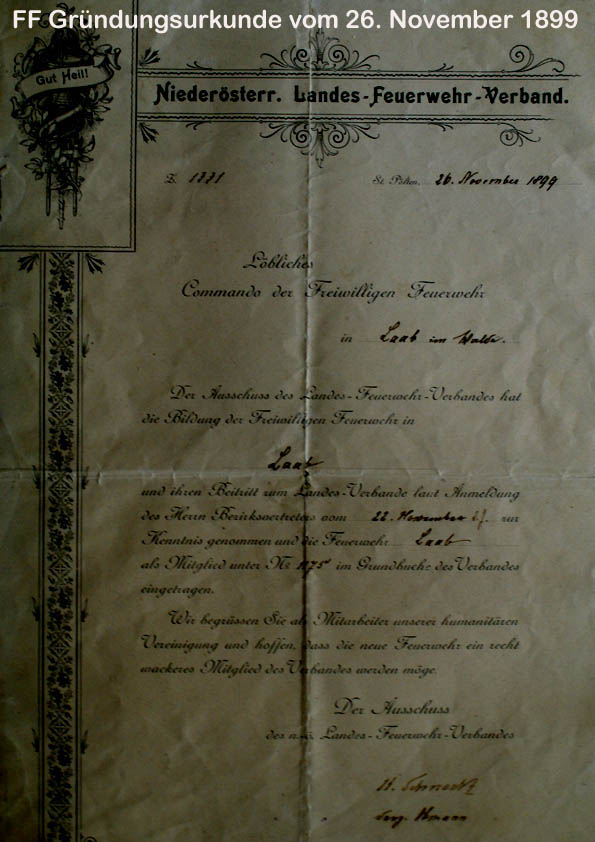 FF Gründungsurkunde vom 26. November 1899
Gut Heil!
Niederösterr. Landes-Feuerwehr-Verband.
Z. 1771
St. Pölten, 26. November 1899
Löbliches
Commando der Freiwilligen Feuerwehr
in Laab im Walde.
Der Ausschuss des Landes-Feuerwehr-Verbandes hat
die Bildung der Freiwilligen Feuerwehr in
Laab
und ihren Beitritt zum Landes-Verbande laut Anmeldung
des Herrn Bezirksvertreters vom 22. November zur
Kenntnis genommen und die Feuerwehr Laab
als Mitglied unter Nr 1175 im Grundbuche des Verbandes
eingetragen.
Wir begrüssen Sie als Mitarbeiter unserer humanitären
Vereinigung und hoffen, dass die neue Feuerwehr ein recht
wackeres Mitglied des Verbandes werden möge.
Der Ausschuss
des n.-ö. Landes-Feuerwehr-Verbandes